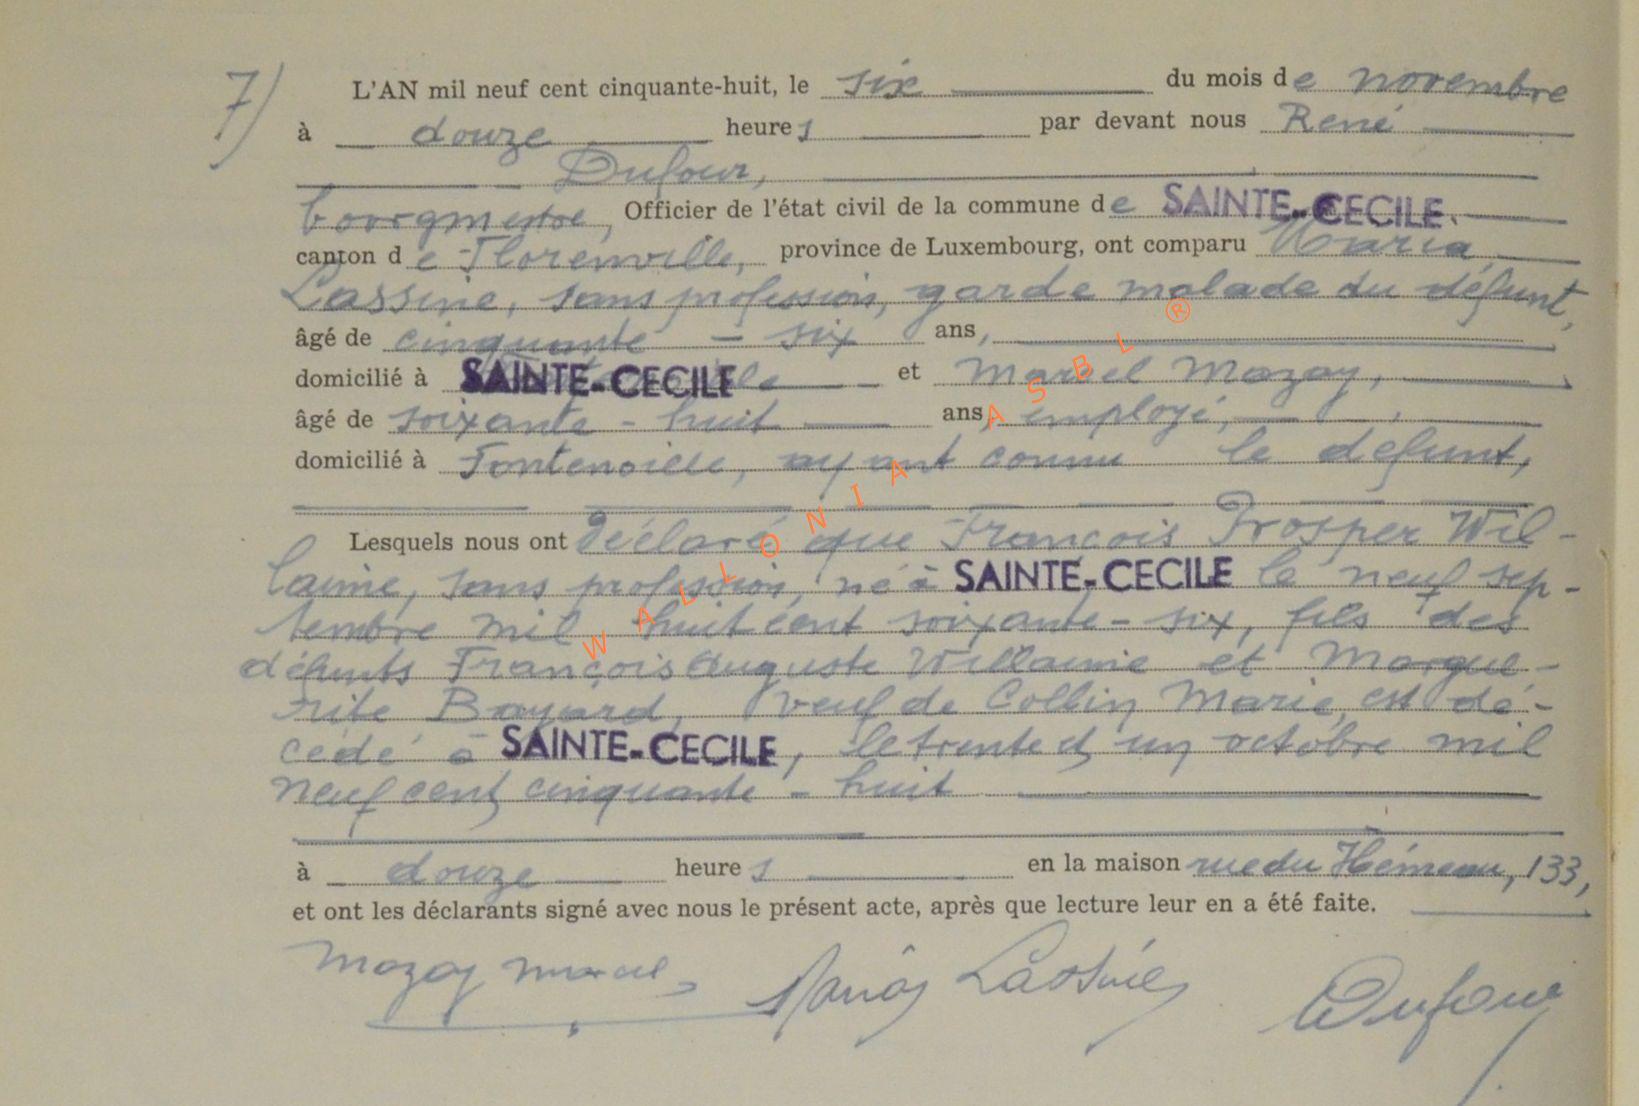 7) L'AN mil neuf cent cinquante-huit, le six du mois de novembre
à douze heures par devant nous René
Dufour,
bourgmestre, Officier de l'état civil de la commune de SAINTE-CECILE.
canton de Florenville, province de Luxembourg, ont comparu Maria
Lassine, sans profession, garde malade du défunt,
âgé de cinquante - six ans,
domicilié à SAINTE-CECILE et Marcel Mazay,
âgé de soixante - huit ans, employé,
domicilié à Fontenoille, ayant connu le défunt,
Lesquels nous ont déclaré que François Prosper Wil-
laime, sans profession, né à SAINTE-CECILE le neuf sep-
tembre mil huit cent soixante-six, fils des
défunts François Auguste Willaime et Margue-
rite Bayard, veuf de Collin Marie, est dé-
cédé à SAINTE-CECILE, le trente et un octobre mil
neuf cent cinquante - huit
à douze heures en la maison rue du 133,
et ont les déclarants signé avec nous le présent acte, après que lecture leur en a été faite.
Mazay Marcel Maria Lassine Dufour
WALLONIA ASBL ®